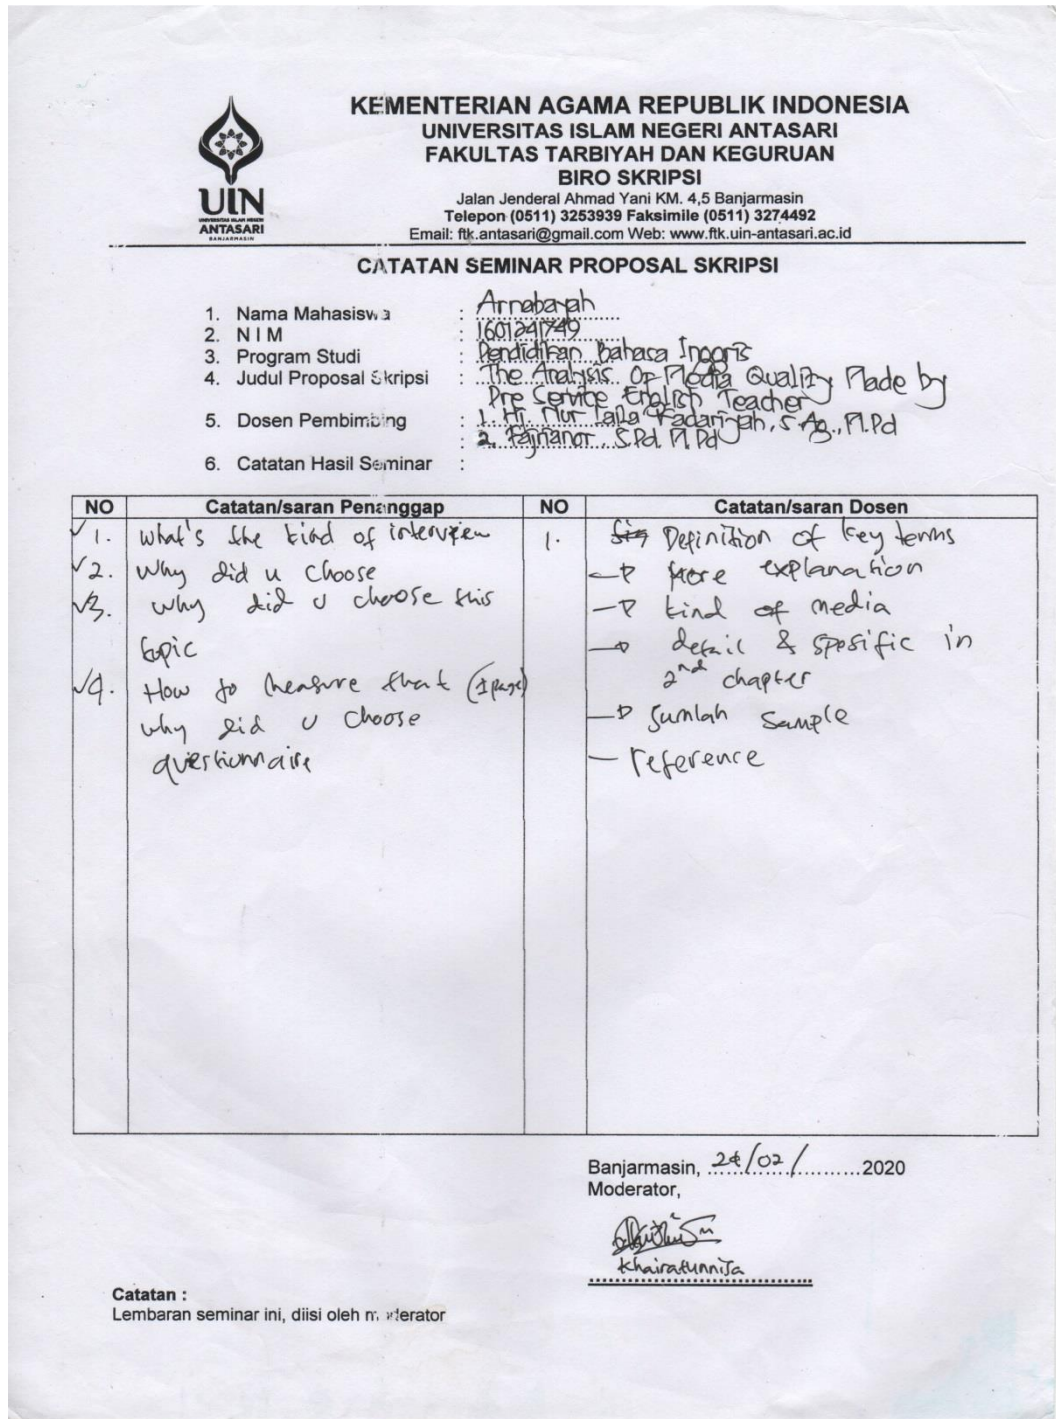 UIN
UNIVERSITAS ISLAM NEGERI
ANTASARI
BANJARMASIN
KEMENTERIAN AGAMA REPUBLIK INDONESIA
UNIVERSITAS ISLAM NEGERI ANTASARI
FAKULTAS TARBIYAH DAN KEGURUAN
BIRO SKRIPSI
Jalan Jenderal Ahmad Yani KM. 4,5 Banjarmasin
Telepon (0511) 3253939 Faksimile (0511) 3274492
Email: ftk.antasari@gmail.com Web: www.ftk.uin-antasari.ac.id
CATATAN SEMINAR PROPOSAL SKRIPSI
1. Nama Mahasiswa : Arnabayah
2. N I M : 1601241749
3. Program Studi : Pendidikan Bahasa Inggris
4. Judul Proposal Skripsi : The Analysis Of Media Quality Made by
Pre Service English Teacher
5. Dosen Pembimbing : 1. Hj. Nur Laila Kadariyah, S.Ag., M.Pd
: 2. Fajrianor, S.Pd. M.Pd
6. Catatan Hasil Seminar :
NO Catatan/saran Penanggap
✓ 1. What's the kind of interview
✓ 2. Why did u choose
✓ 3. why did u choose this
topic
✓ 4. How to measure that (1 page)
why did u choose
questionnaire
NO Catatan/saran Dosen
1. Definition of key terms
→ More explanation
→ kind of media
→ detail & spesific in
2nd chapter
→ Jumlah sample
— reference
Banjarmasin, /02/ 2020
Moderator,
Khairatunnisa
Catatan :
Lembaran seminar ini, diisi oleh moderator